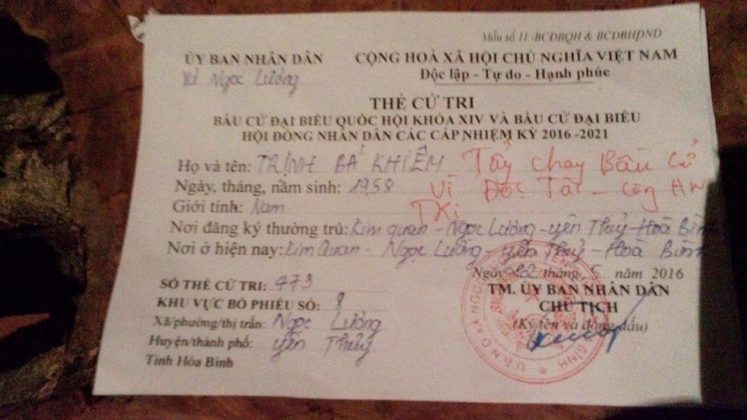 Mẫu số 11 /BCĐBQH & BCĐBHĐND
ỦY BAN NHÂN DÂN
xã Ngọc Lương
CỘNG HOÀ XÃ HỘI CHỦ NGHĨA VIỆT NAM
Độc lập - Tự do - Hạnh phúc
THẺ CỬ TRI
BẦU CỬ ĐẠI BIỂU QUỐC HỘI KHÓA XIV VÀ BẦU CỬ ĐẠI BIỂU
HỘI ĐỒNG NHÂN DÂN CÁC CẤP NHIỆM KỲ 2016 -2021
Họ và tên: TRỊNH BÁ KHIÊM
Tẩy chay Bầu Cử
Vì Độc Tài - Công AN
TRỊ
Ngày, tháng, năm sinh: 1958
Giới tính: Nam
Nơi đăng ký thường trú: Kim Quan - Ngọc Lương - Yên Thủy - Hoà Bình
Nơi ở hiện nay: Kim Quan - Ngọc Lương - Yên Thủy - Hoà Bình
Ngày 22 tháng 5 năm 2016
SỐ THẺ CỬ TRI: 473
KHU VỰC BỎ PHIẾU SỐ: 8
Xã/phường/thị trấn: Ngọc Lương
Huyện/thành phố: Yên Thủy
Tỉnh Hòa Bình
TM. ỦY BAN NHÂN DÂN
CHỦ TỊCH
(Ký tên và đóng dấu)